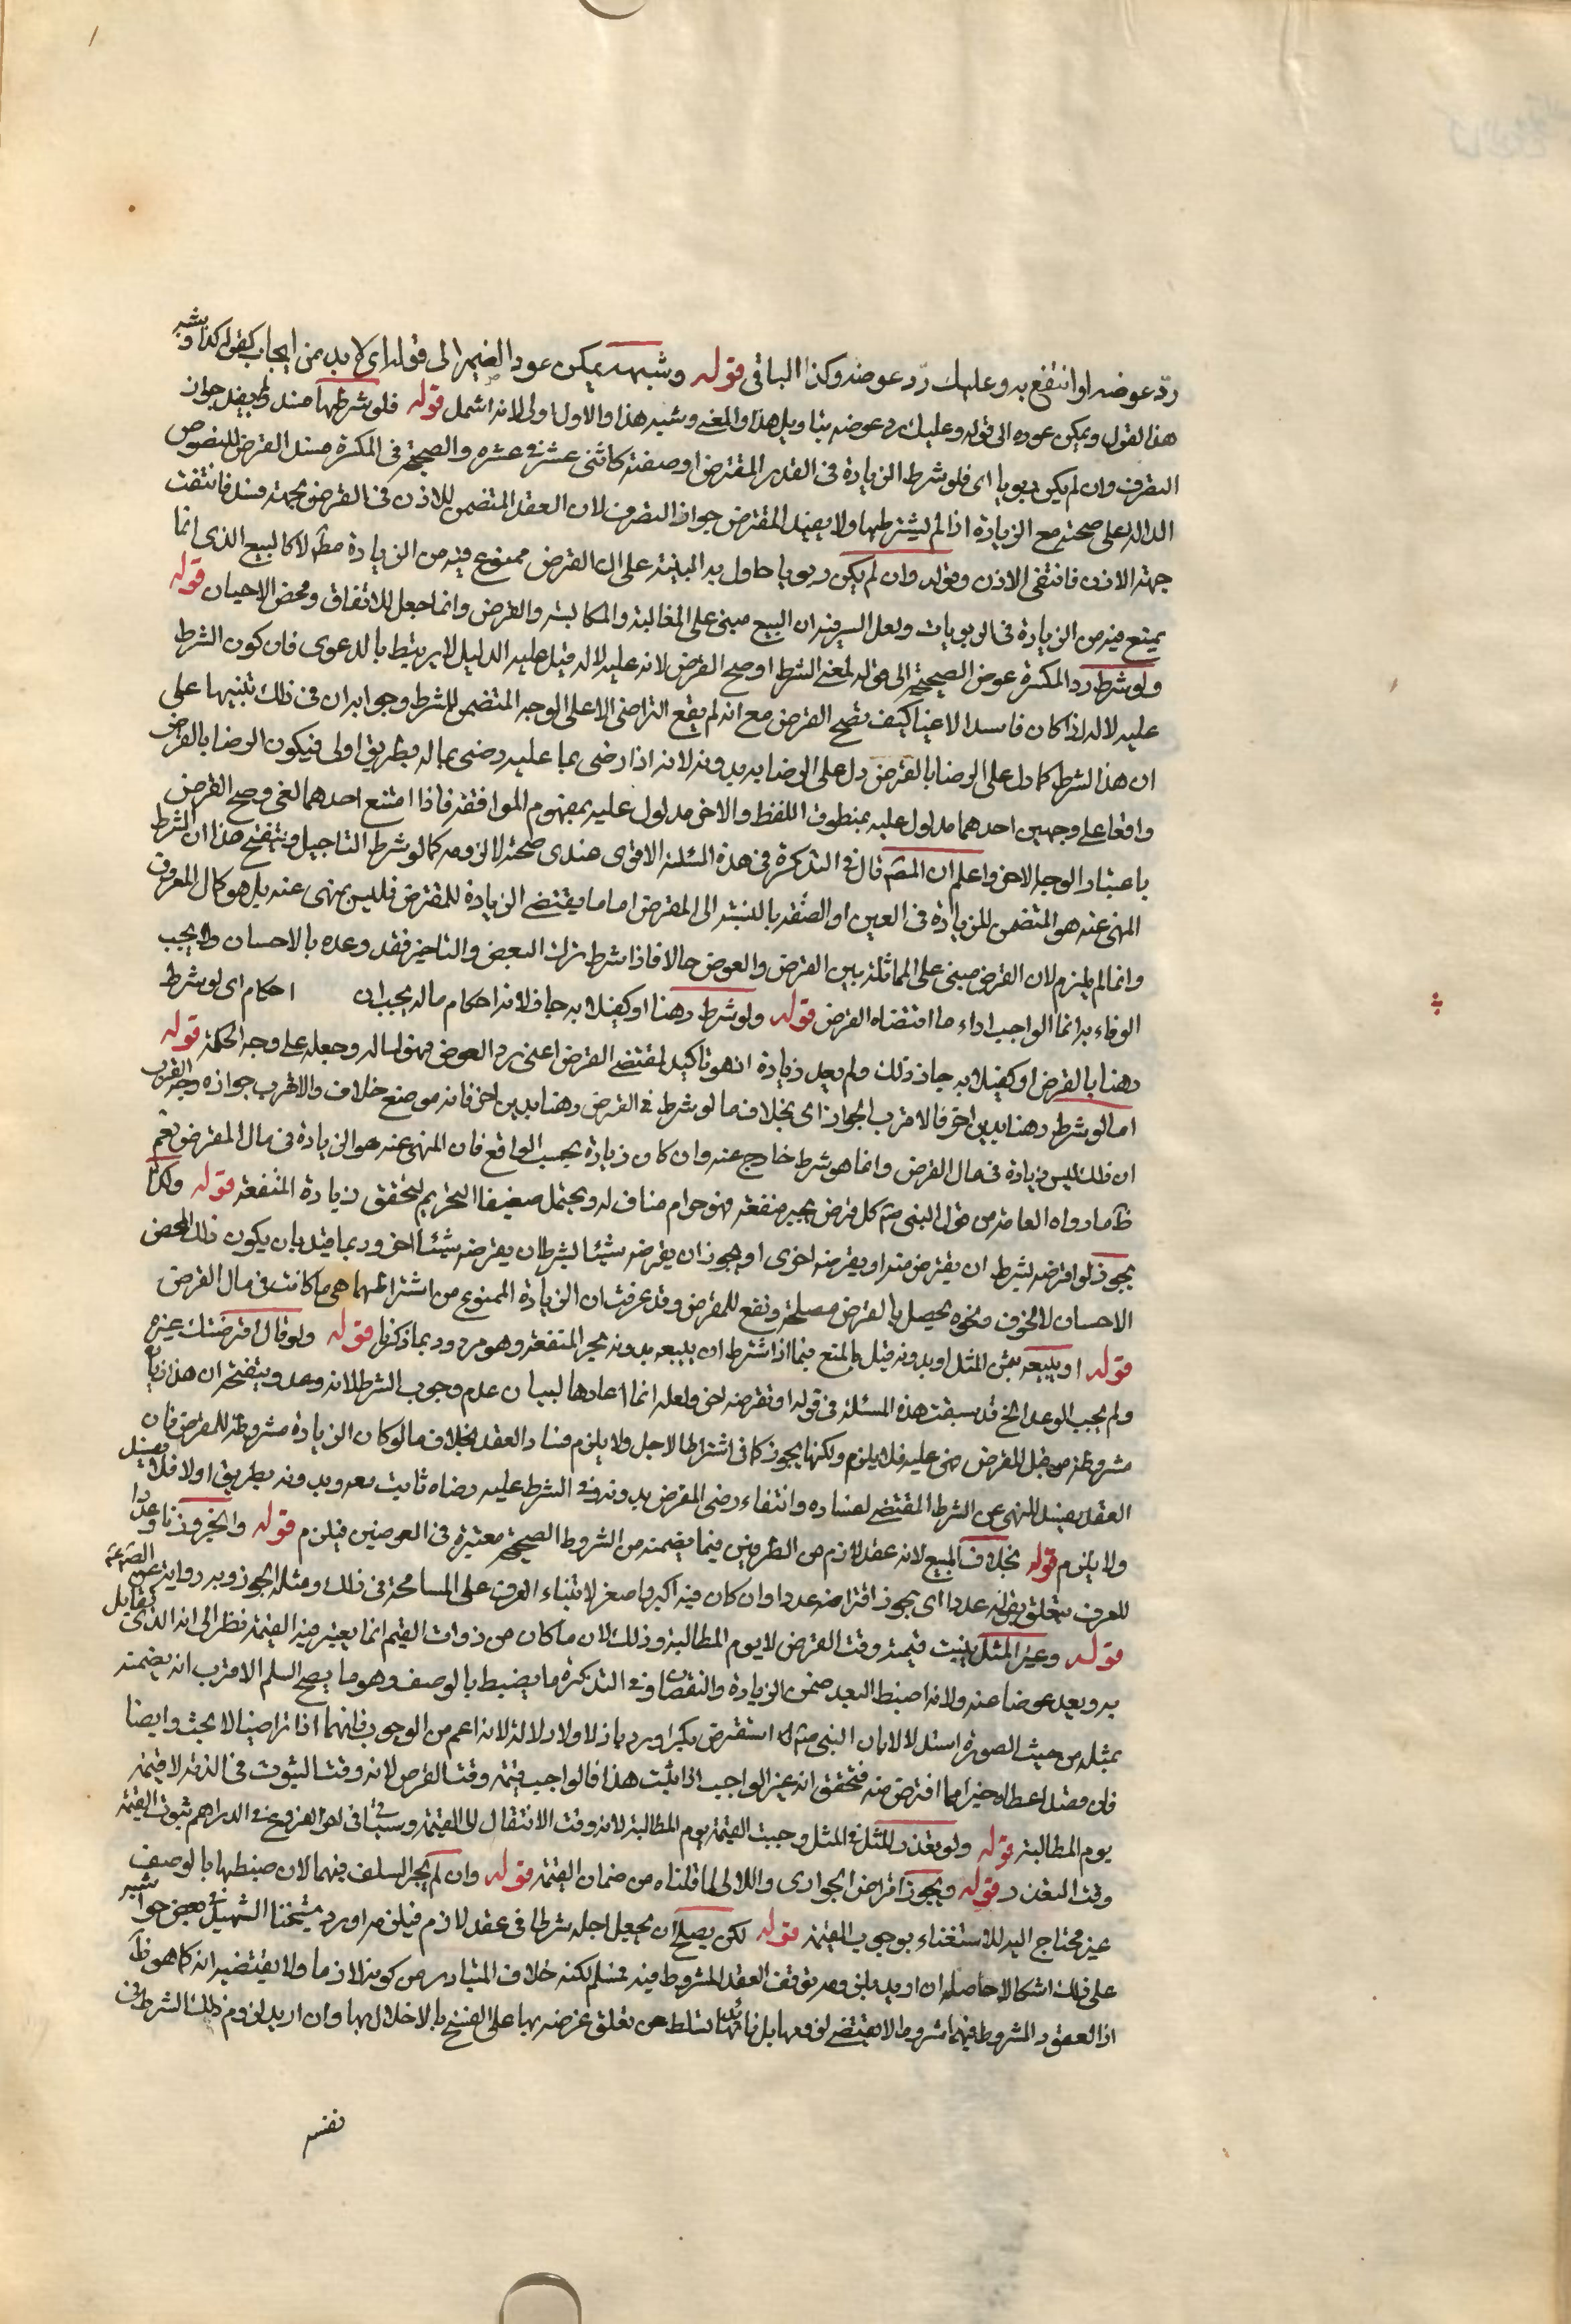 ردّ عوضه او انتفع به وعليك ردّ عوضه وكذا الباقي قوله وشبهه يمكن عود الضمير الى قوله اي لا بد من ايجاب كقوله كذا وشبه
هذا القول ويمكن عوده الى قوله وعليك رد عوضه بتاويل هذا والمغنى وشبه هذا والاول اولى لانه اشمل قوله فلو شرطها فسد ولم يفد جواز
التصرف وان لم يكن ربويا اي فلو شرط الزيادة في القدر المقترض او صفته كاثنى عشر في عشره والصحيح في المكسرة فسد القرض للنصوص
الدالة على صحته مع الزيادة اذا لم يشترطها ولا يفيد المقترض جواز التصرف لان العقد المتضمن للاذن في القرض بجهته فسد فانتفت
جهة الاذن فانتفى الاذن وقوله وان لم يكن ربويا حاول به التنبيه على ان القرض ممنوع فيه من الزيادة مطلقا لا كالبيع الذي انما
يمنع فيه من الزيادة في الربويات ولعل السر فيه ان البيع مبني على المغالبة والمكايسة والقرض وانما جعل للارتفاق ومحض الاحسان قوله
ولو شرط رد المكسرة عوض الصحيحة الى قوله لغى الشرط وصح القرض لانه عليه لا له قيل عليه الدليل لا يرتبط بالدعوى فان كون الشرط
عليه لا له اذا كان فاسدا لاغيا كيف تصح القرض مع انه لم يقع التراضي الا على الوجه المتضمن للشرط وجوابه ان في ذلك تنبيها على
ان هذا الشرط كما دل على الرضا بالقرض دل على الرضا به بدونه لانه اذا رضى بما عليه رضى بما له بطريق اولى فيكون الرضا بالقرض
واقعا على وجهين احدهما مدلول عليه بمنطوق اللفظ والاخر مدلول عليه بمفهوم الموافقة فاذا امتنع احدهما لغى وصح القرض
باعتبار الوجه الاخر واعلم ان المصنف قال في التذكرة في هذه المسئلة الاقوى عندي صحته لا لزومه كما لو شرط التاجيل وينقح هذا ان الشرط
المنهي عنه هو المتضمن للزيادة في العين او الصفة بالنسبة الى المقرض اما ما يقتضي الزيادة للمقترض فليس بمنهى عنه بل هو كمال المعروف
وانما لم يلزم لان القرض مبني على المماثلة بين القرض والعوض حالا فاذا شرط ترك البعض والتاخير فقد وعده بالاحسان ولا يجب
الوفاء به انما الواجب اداء ما اقتضاه القرض قوله ولو شرط رهنا او كفيلا به جاز لانه احكام ماله يجب ان احكام اي لو شرط
رهنا بالقرض او كفيلا به جاز ذلك ولم يعد زيادة اذ هو تاكيد لمقتضى القرض اعنى رد العوض فهو لماله وجعله على وجه الحكمة قوله
اما لو شرط رهنا بدين اخر فالاقرب الجواز اي بخلاف ما لو شرط في القرض رهنا بدين اخر فانه موضع خلاف والاقرب جوازه وجه القرب
ان ذلك ليس زيادة في مال القرض وانما هو شرط خارج عنه وان كان زيادة بحسب الواقع فان المنهي عنه هو الزيادة في مال المقرض نعم
ظ ما رواه العامة من قول النبي ص كل قرض يجر منفعة فهو حرام مناف له ويحتمل ضعيفا التحريم لتحقق زيادة المنفعة قوله وكذا
يجوز لو اقرضه بشرط ان يقترض منه او يقرضه اخرى او يجوز ان يقرضه شيئا بشرط ان يقرضه شيئا اخر وربما قيد بان يكون ذلك لمحض
الاحسان لا لخوف ونحوه يحصل بالقرض مصلحة ونفع للمقرض وقد عرفت ان الزيادة الممنوع من اشتراطها هي ما كانت في مال القرض
قوله او يبيعه بثمن المثل او بدونه قيل بالمنع فيما اذا اشترط ان يبيعه بدونه لجر المنفعة وهو مردود بما ذكرنا قوله ولو قال اقرضتك بغيره
ولم يجب الوعد الخ قد سبقت هذه المسئلة في قوله او تقرضه اخر ولعله انما اعادها لبيان عدم وجوب الشرط لانه وعد وينقحه ان هذا زيادة
مشروطة من قبل المقرض فهى عليه فلا يلزم ولكنها يجوز كما في اشتراط الاجل ولا يلزم فساد العقد بخلاف ما لو كان الزيادة مشروطة للمقرض فان
العقد يفسد للنهي عن الشرط المقتضي لفساده وانتفاء رضى المقرض بدونه وفي الشرط عليه رضاه ثابت معه وبدونه بطريق اولى فلا يفسد
ولا يلزم قوله بخلاف البيع لانه عقد لازم من الطرفين فيما يضمنه من الشروط الصحيحة معتبرة في العوضين فيلزم قوله والخبز وزنا وعددا
للعرف يتعلق بقوله عددا اي يجوز اقتراضه عددا وان كان فيه اكبر واصغر لابتناء العرف على المسامحة في ذلك ومثله الجوز وبه رواية عن الصادق ع
قوله وغير المثلي يثبت قيمته وقت القرض لا يوم المطالبة وذلك لان ما كان من ذوات القيم انما يعتبر فيه القيمة نظرا الى انه الذي تقابل
به ويعد عوضا عنه ولانه اضبط البعد ضمن الزيادة والنقصان وفي التذكرة ما يضبط بالوصف وهو ما يصح السلم الاقرب انه يضمنه
بمثله من حيث الصورة استدلالا بان النبي ص استقرض بكرا ورد بازلا ولا دلالة لانه اعم من الوجوب فانهما اذا تراضيا لا بحث وايضا
فان فعله اعطاه خيرا مما اقترض منه فتحقق انه غير الواجب اذا ثبت هذا فالواجب قيمته وقت القرض لانه وقت الثبوت في الذمة لا قيمته
يوم المطالبة قوله ولو تعذر المثل في المثلي وجبت القيمة يوم المطالبة لانه وقت الانتقال الى القيمة وسياتي في اخر الفروع في الدراهم ثبوت القيمة
وقت التعذر قوله ويجوز اقراض الجواري واللالي لما قلناه من ضمان القيمة قوله وان لم يجز السلف فيهما لان ضبطها بالوصف
غير محتاج اليه للاستغناء بوجوب القيمة قوله لكن يصح ان يجعل اجله شرطا في عقد لازم فيلزم اورد شيخنا الشهيد في بعض حواشيه
على ذلك اشكالا حاصله ان اريد بلزومه توقف العقد المشروط فيه فمسلم لكنه خلاف المتبادر من كونه لازما ولا يقتضيه انه كما هو ظ
اذ العقود المشروط فيها شروط لا يقتضي لزومها بل فائدتها تسلط من تعلق غرضه بها على الفسخ بالاخلال بها وان اريد لزوم ذلك الشرط في
نفسه